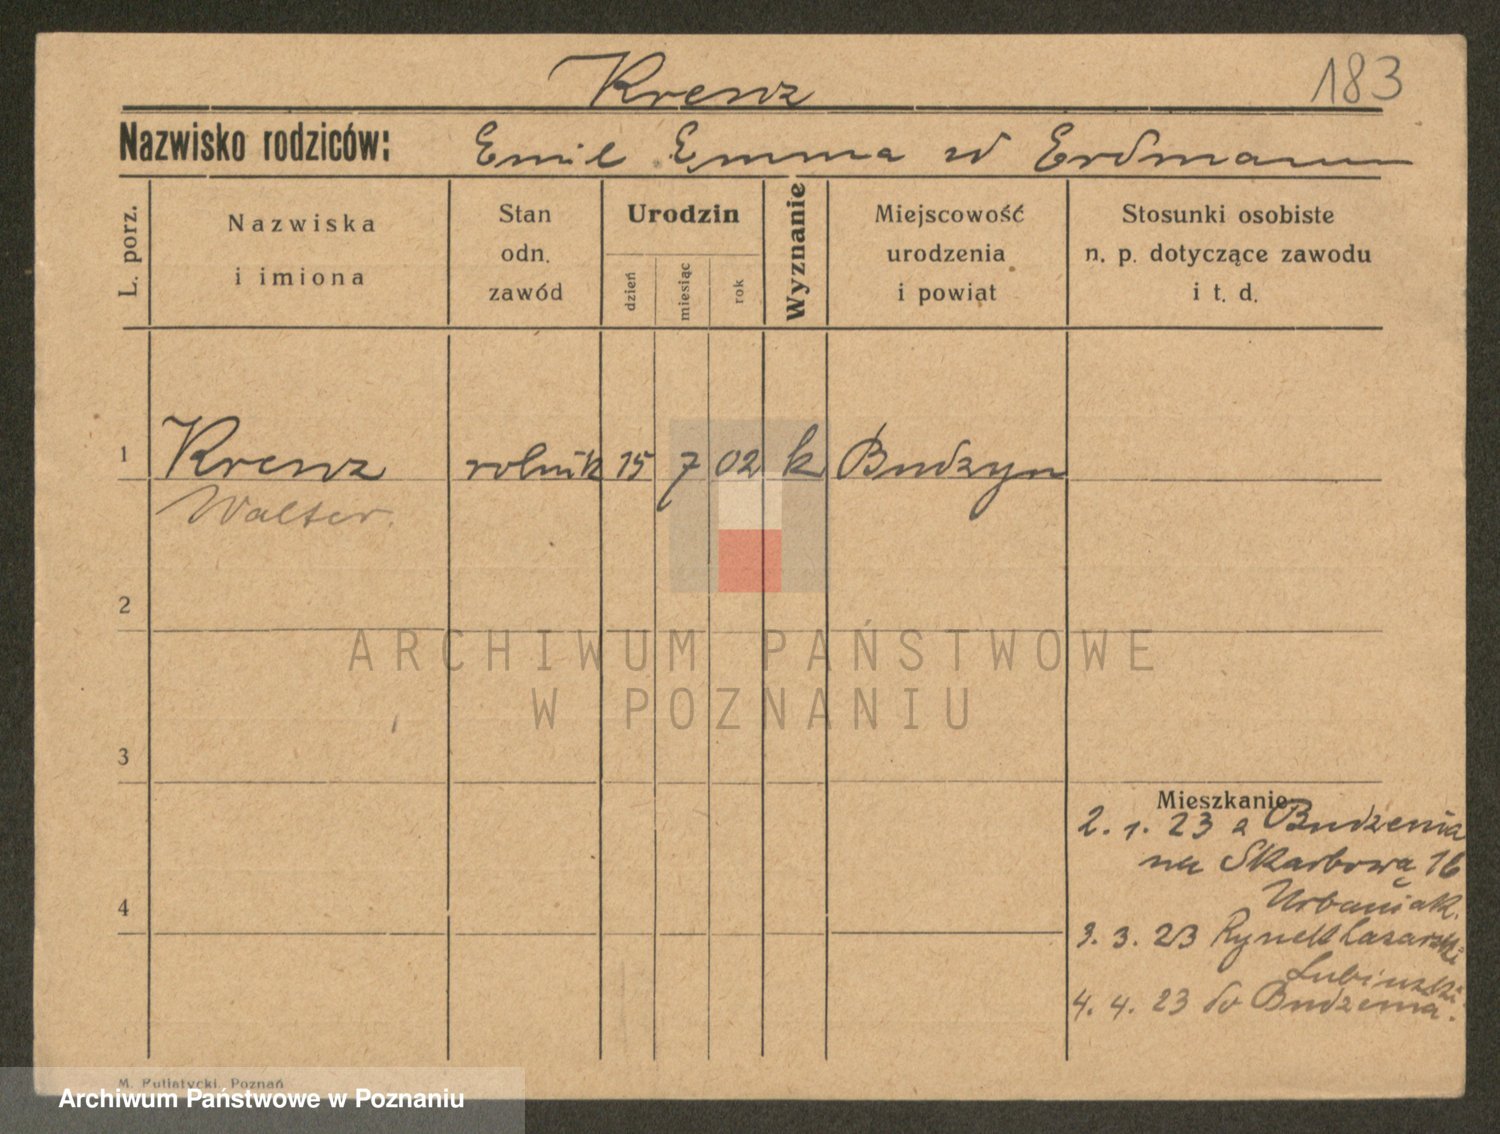 183
Krenz
Nazwisko rodziców: Emil Emma zd Erdmann
L. porz.
Nazwiska i imiona
Stan odn. zawód
Urodzin
dzień
miesiąc
rok
Wyznanie
Miejscowość urodzenia i powiat
Stosunki osobiste n. p. dotyczące zawodu i t. d.
1 Krenz rolnik 15 7 02 k Budzyn
Walter.
2
3
4
Mieszkanie:
2. 1. 23 z Budzenia
na Skarbową 16
Urbaniak.
3. 3. 23 Rynek Lazarski
Lubinski
4. 4. 23 do Budzenia.
ARCHIWUM PAŃSTWOWE
W POZNANIU
M. Putiatycki, Poznań
Archiwum Państwowe w Poznaniu